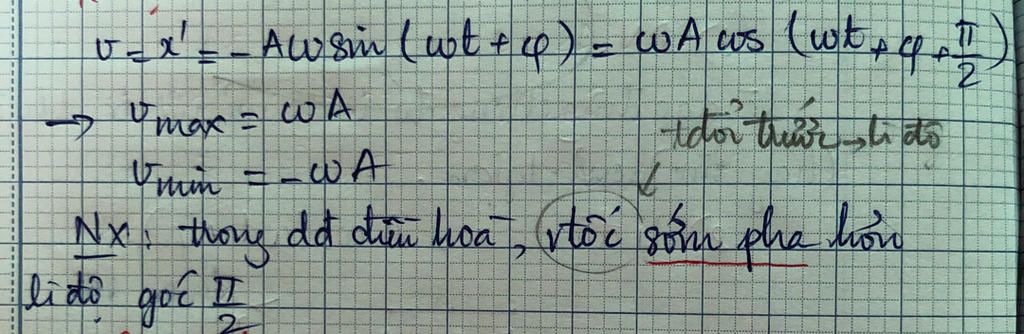 v = x' = - Aω sin (ωt + φ) = ωA cos (ωt + φ + π/2)
→ v max = ωA
tđổi trước → li độ
v min = - ωA
Nx: trong dđ điều hoà, vtốc sớm pha hơn
li độ góc π/2